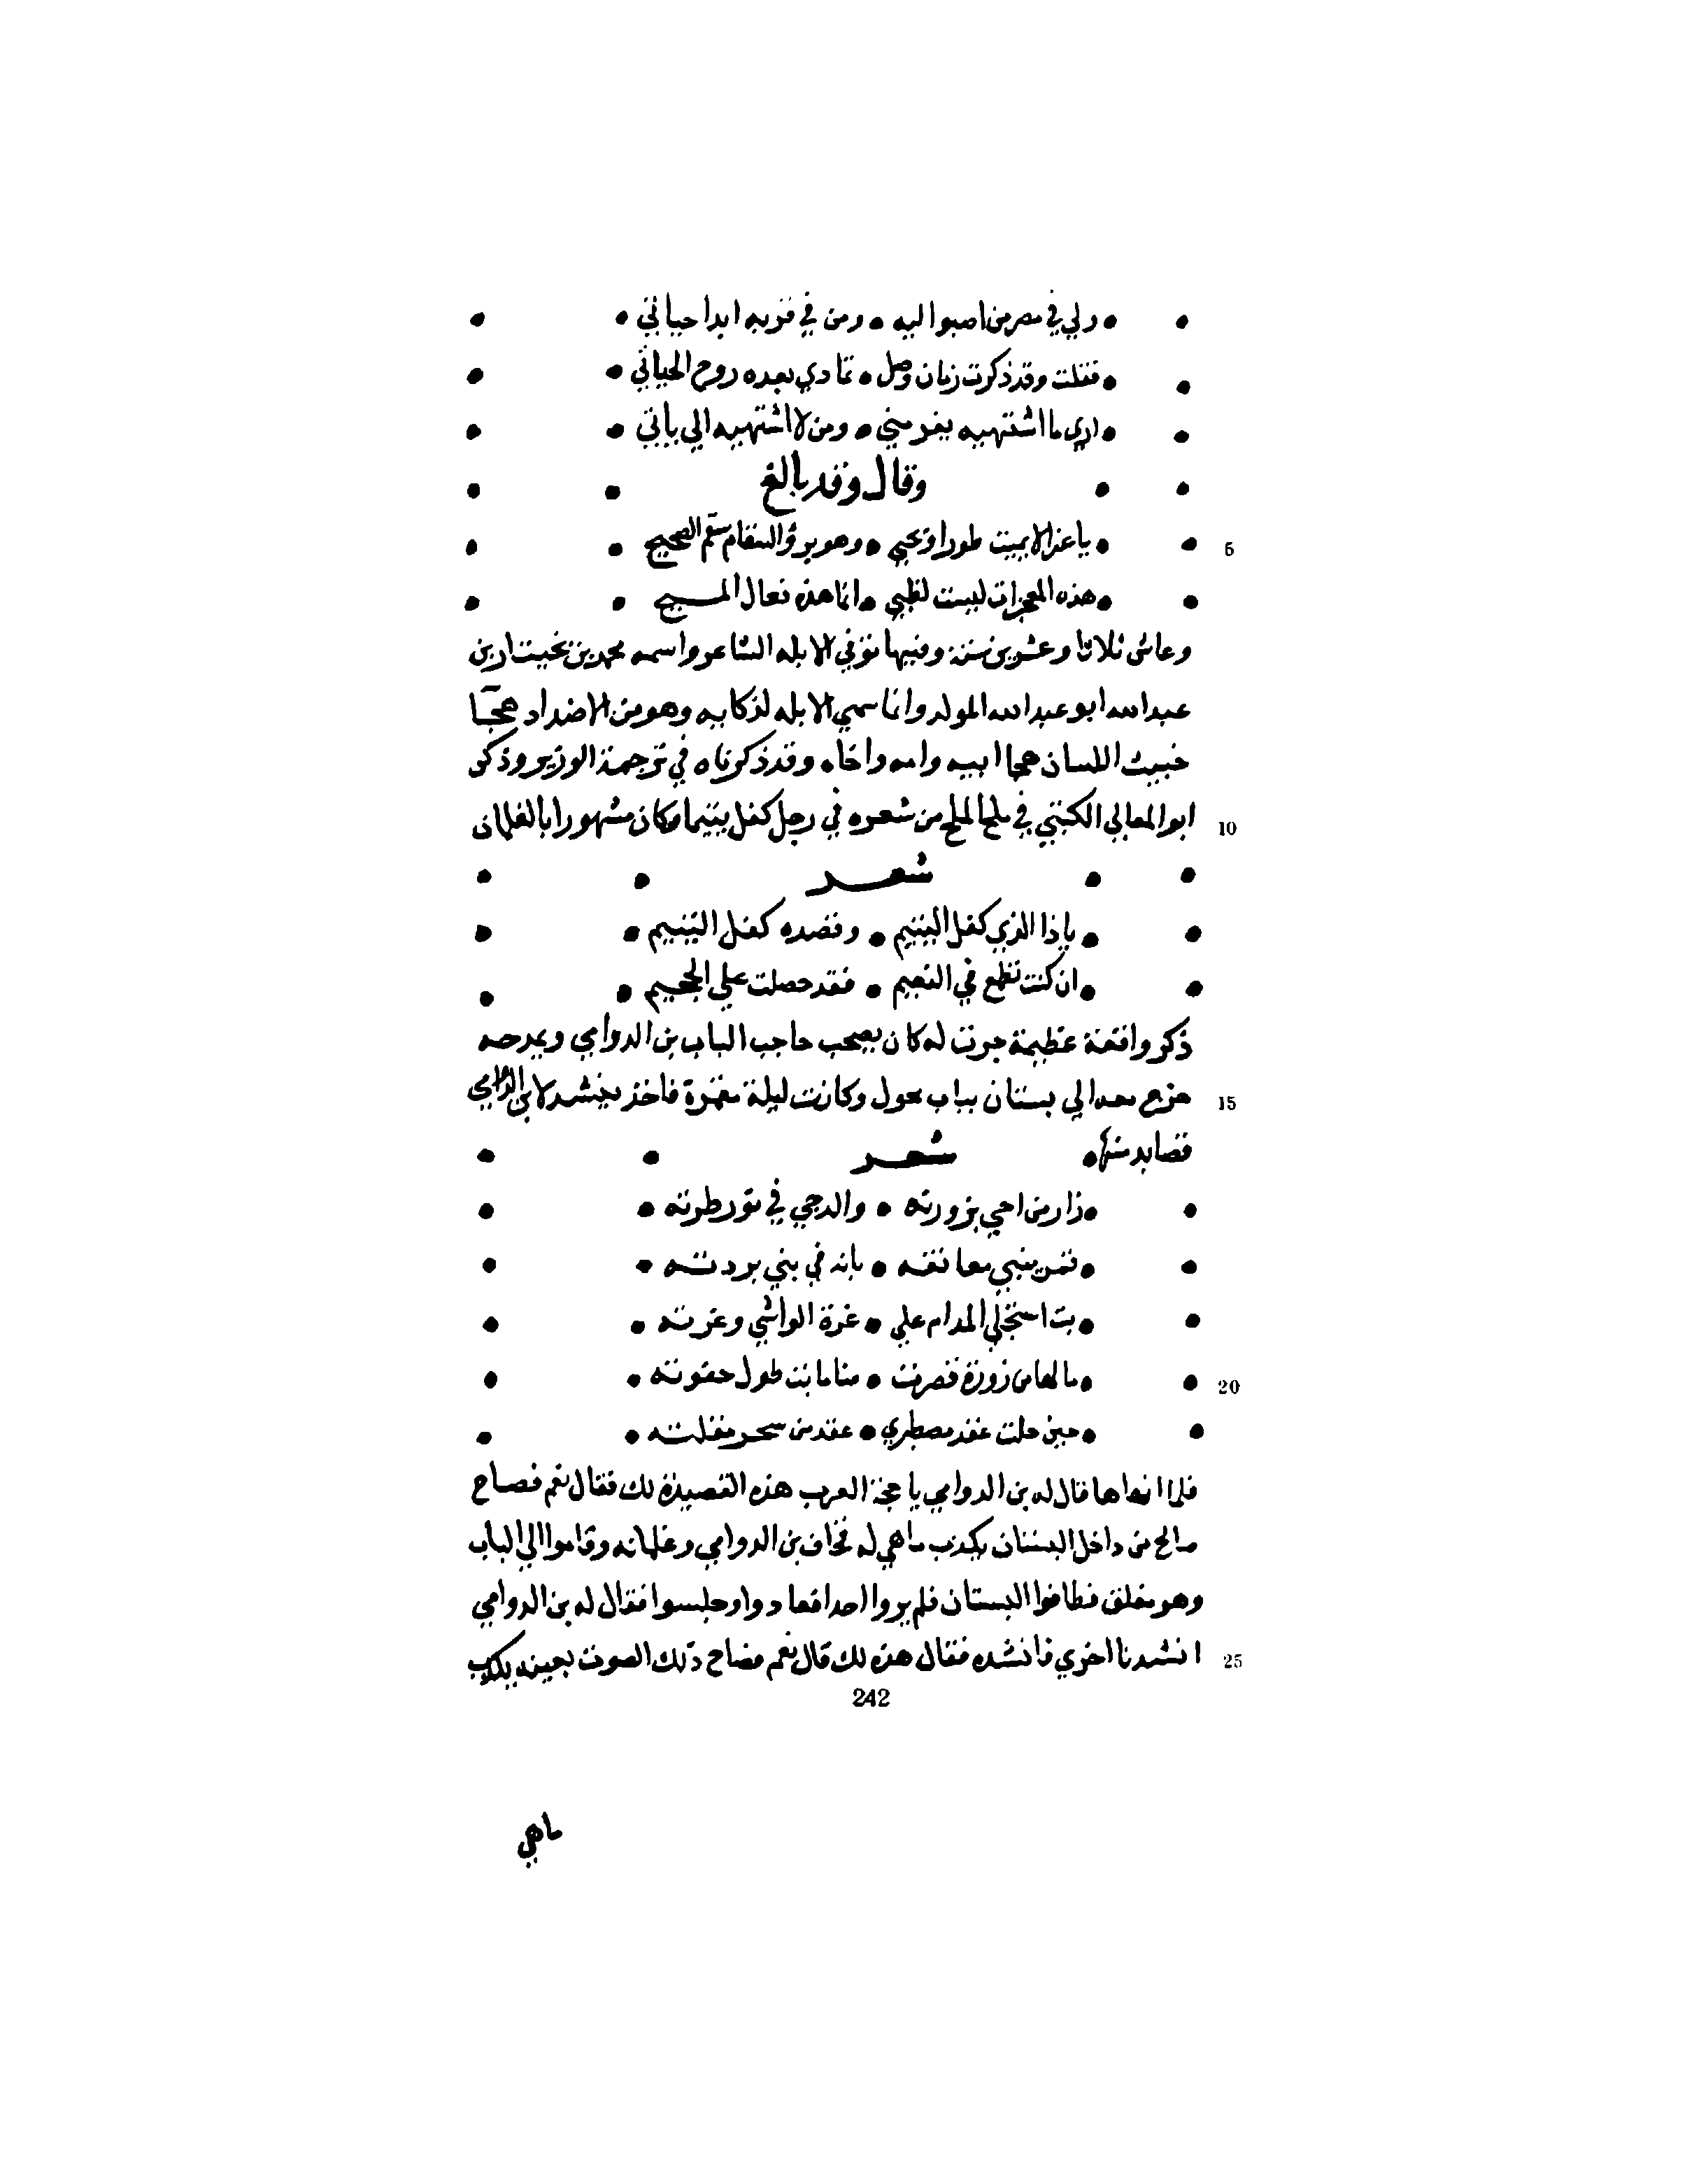 ولي في مصر من اصبوا اليه • ومن في قربه ابدا حياتي
فقلت وقد ذكرت زمان وصل • تمادي بعده روح الحياتي
اري ما اشتهيه يفر مني • ومن لا اشتهيه الي ياتي
وقال وقد بالغ
5 يا عذالا يميت طورا ويحيي • وهو برؤ السقام سقم الصحيح
هذه المعجزات ليست لظبي • انما هذه فعال المسيح
وعاش ثلاثا وعشرين سنة وفيها توفي الابله الشاعر واسمه محمد بن بختيار بن
عبد الله ابو عبد الله المولد وانما سمي الابله لذكايه وهو من الاضداد هجا
خبيث اللسان هجا ابيه وامه واخاه وقد ذكرناه في ترجمة الوزير وذكر
10 ابو المعالي الكتبي في ملح الملح من شعره في رجل كفل يتيما وكان مشهورا بالغلمان
شعر
ياذا الذي كفل اليتيم • وقصده كفل اليتيم
ان كنت تطمع في النعيم • فقد حصلت علي الجحيم
ذكر واقعة عظيمة جرت له كان يصحب حاجب الباب بن الدوامي ويمدحه
15 خرج معه الي بستان بباب محول وكانت ليلة مقمرة فاخذ ينشد لابن الدوامي
قصايد منها • شعر
زار من احيي بزورته • والدجي في نور طرته
قمر يثني معانقه • بانه في ثني بردته
بت استجلي المدام علي • غرة الواشي وغرته
20 مالها من زورة قصرت • منا ما بت طول حفوته
حين حلت عقد مصطبري • عقد من سحر مقلته
فلما انهاها قال له بن الدوامي يا حجة العرب هذه القصيدة لك فقال نعم فصاح
صالح من داخل البستان يكذب ما هي له فخاف بن الدوامي وغلمانه وقاموا الي الباب
وهو مغلق فطافوا البستان فلم يروا احدا فعادوا وجلسوا فقال له بن الدوامي
25 انشدنا اخري فانشده فقال هذه لك قال نعم فصاح ذلك الصوت بعينه يكذب
242
ماهي